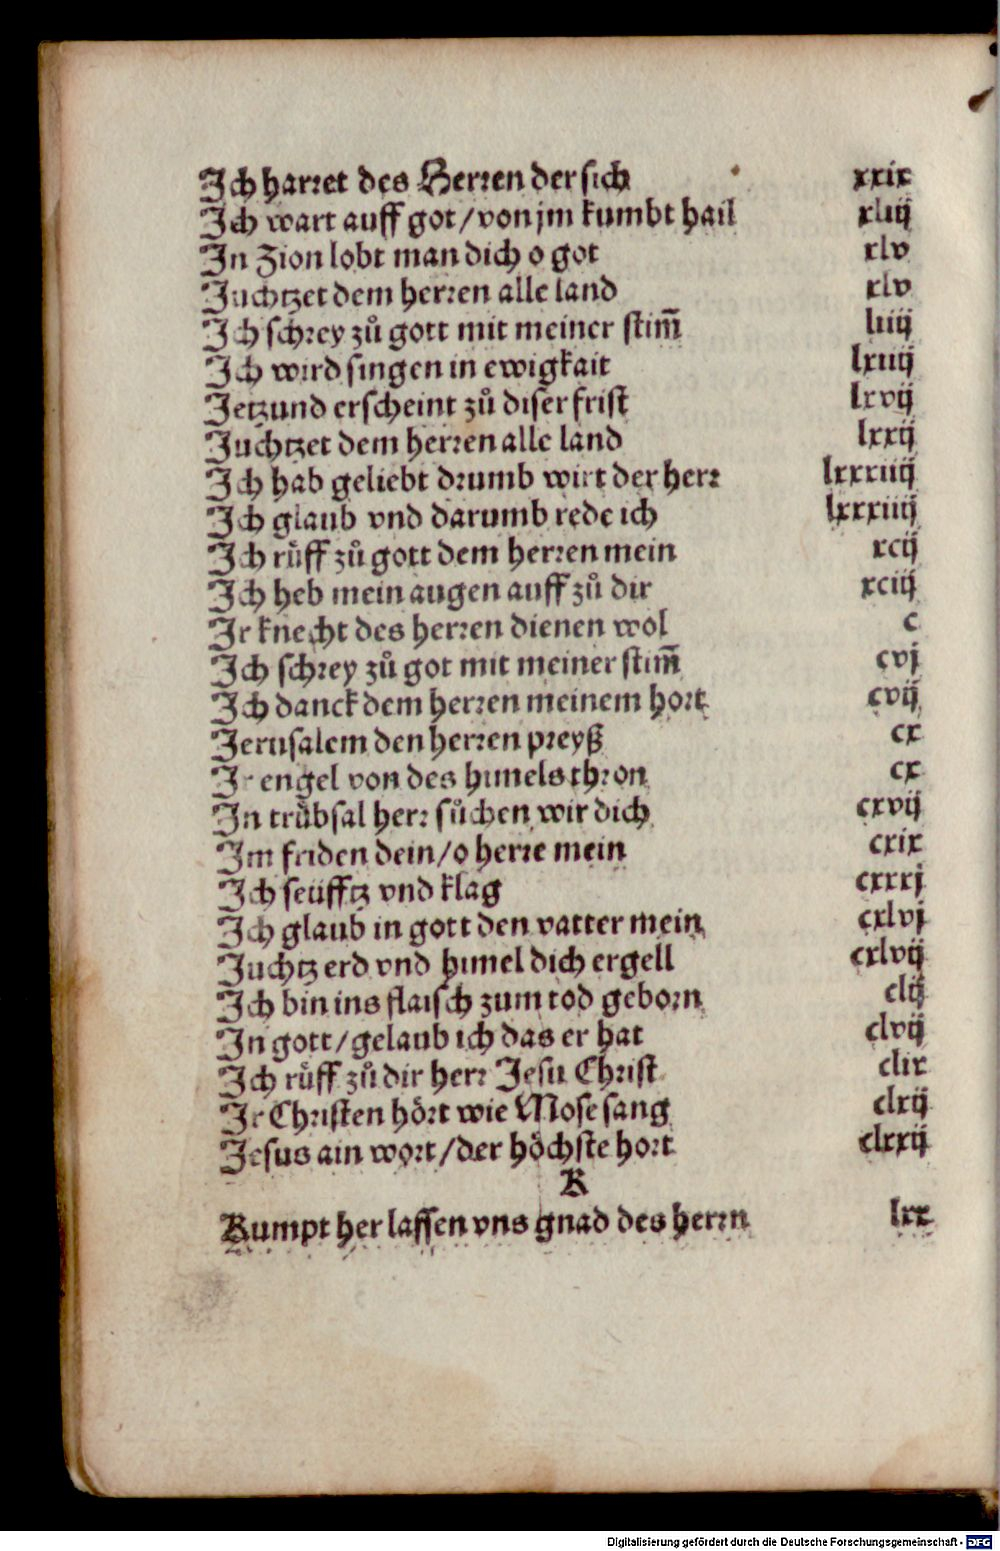 Ich harret des Herren der sich xxix
Ich wart auff got/von jm kumbt hail xliij
In Zion lobt man dich o got xlv
Juchtzet dem herren alle land xlv
Ich schrey zů gott mit meiner stim̃ liiij
Ich wird singen in ewigkait lxiiij
Jetzund erscheint zů diser frist lxvij
Juchtzet dem herren alle land lxxij
Ich hab geliebt drumb wirt der herr lxxxiiij
Ich glaub vnd darumb rede ich lxxxiiij
Ich růff zů gott dem herren mein xcij
Ich heb mein augen auff zů dir xciij
Ir knecht des herren dienen wol c
Ich schrey zů got mit meiner stim̃ cvj
Ich danck dem herren meinem hort cvij
Jerusalem den herren preyß cx
Ir engel von des himels thron cx
In trůbsal herr sůchen wir dich cxvij
Im friden dein/o herre mein cxix
Ich seüfftz vnd klag cxxxj
Ich glaub in gott den vatter mein cxlvj
Juchtz erd vnd himel dich ergell cxlvij
Ich bin ins flaisch zum tod geborn clij
In gott/gelaub ich das er hat clvij
Ich růff zů dir herr Jesu Christ clix
Ir Christen hört wie Mose sang clxij
Jesus ain wort/der höchste hort clxxij
K
Kumpt her lassen vns gnad des herrn lxx
Digitalisierung gefördert durch die Deutsche Forschungsgemeinschaft - DFG